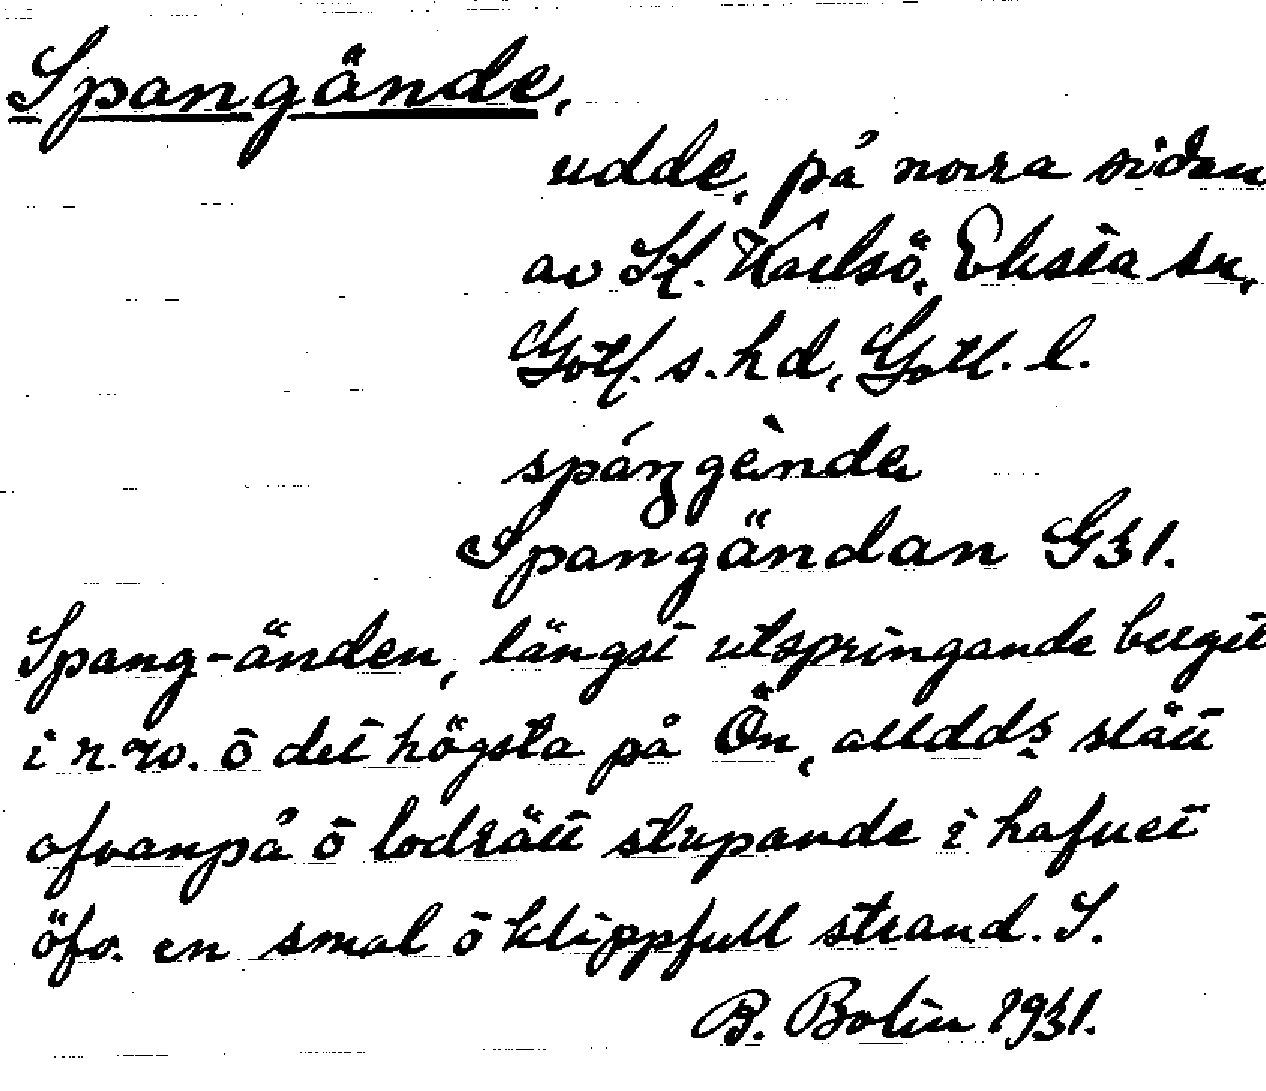 Spangände,
udde, på norra sidan
av St. Karlsö, Eksta sn,
Gotl. s. hd, Gotl. l.
Spangändan G31.
Spang-änden, längst utspringande berget
i n.v. ō det högsta på Ön, slätt
ofvanpå ō lodrätt stupande i hafvet
öfv. en smal ō klippfull strand. S.
B. Bolin 1931.